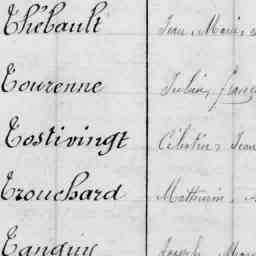 Thébault Jean, Marie,
Tourenne Julien,
Tostivingt Célestin, Jean
Trouchard Mathurin,
Tanguy Joseph